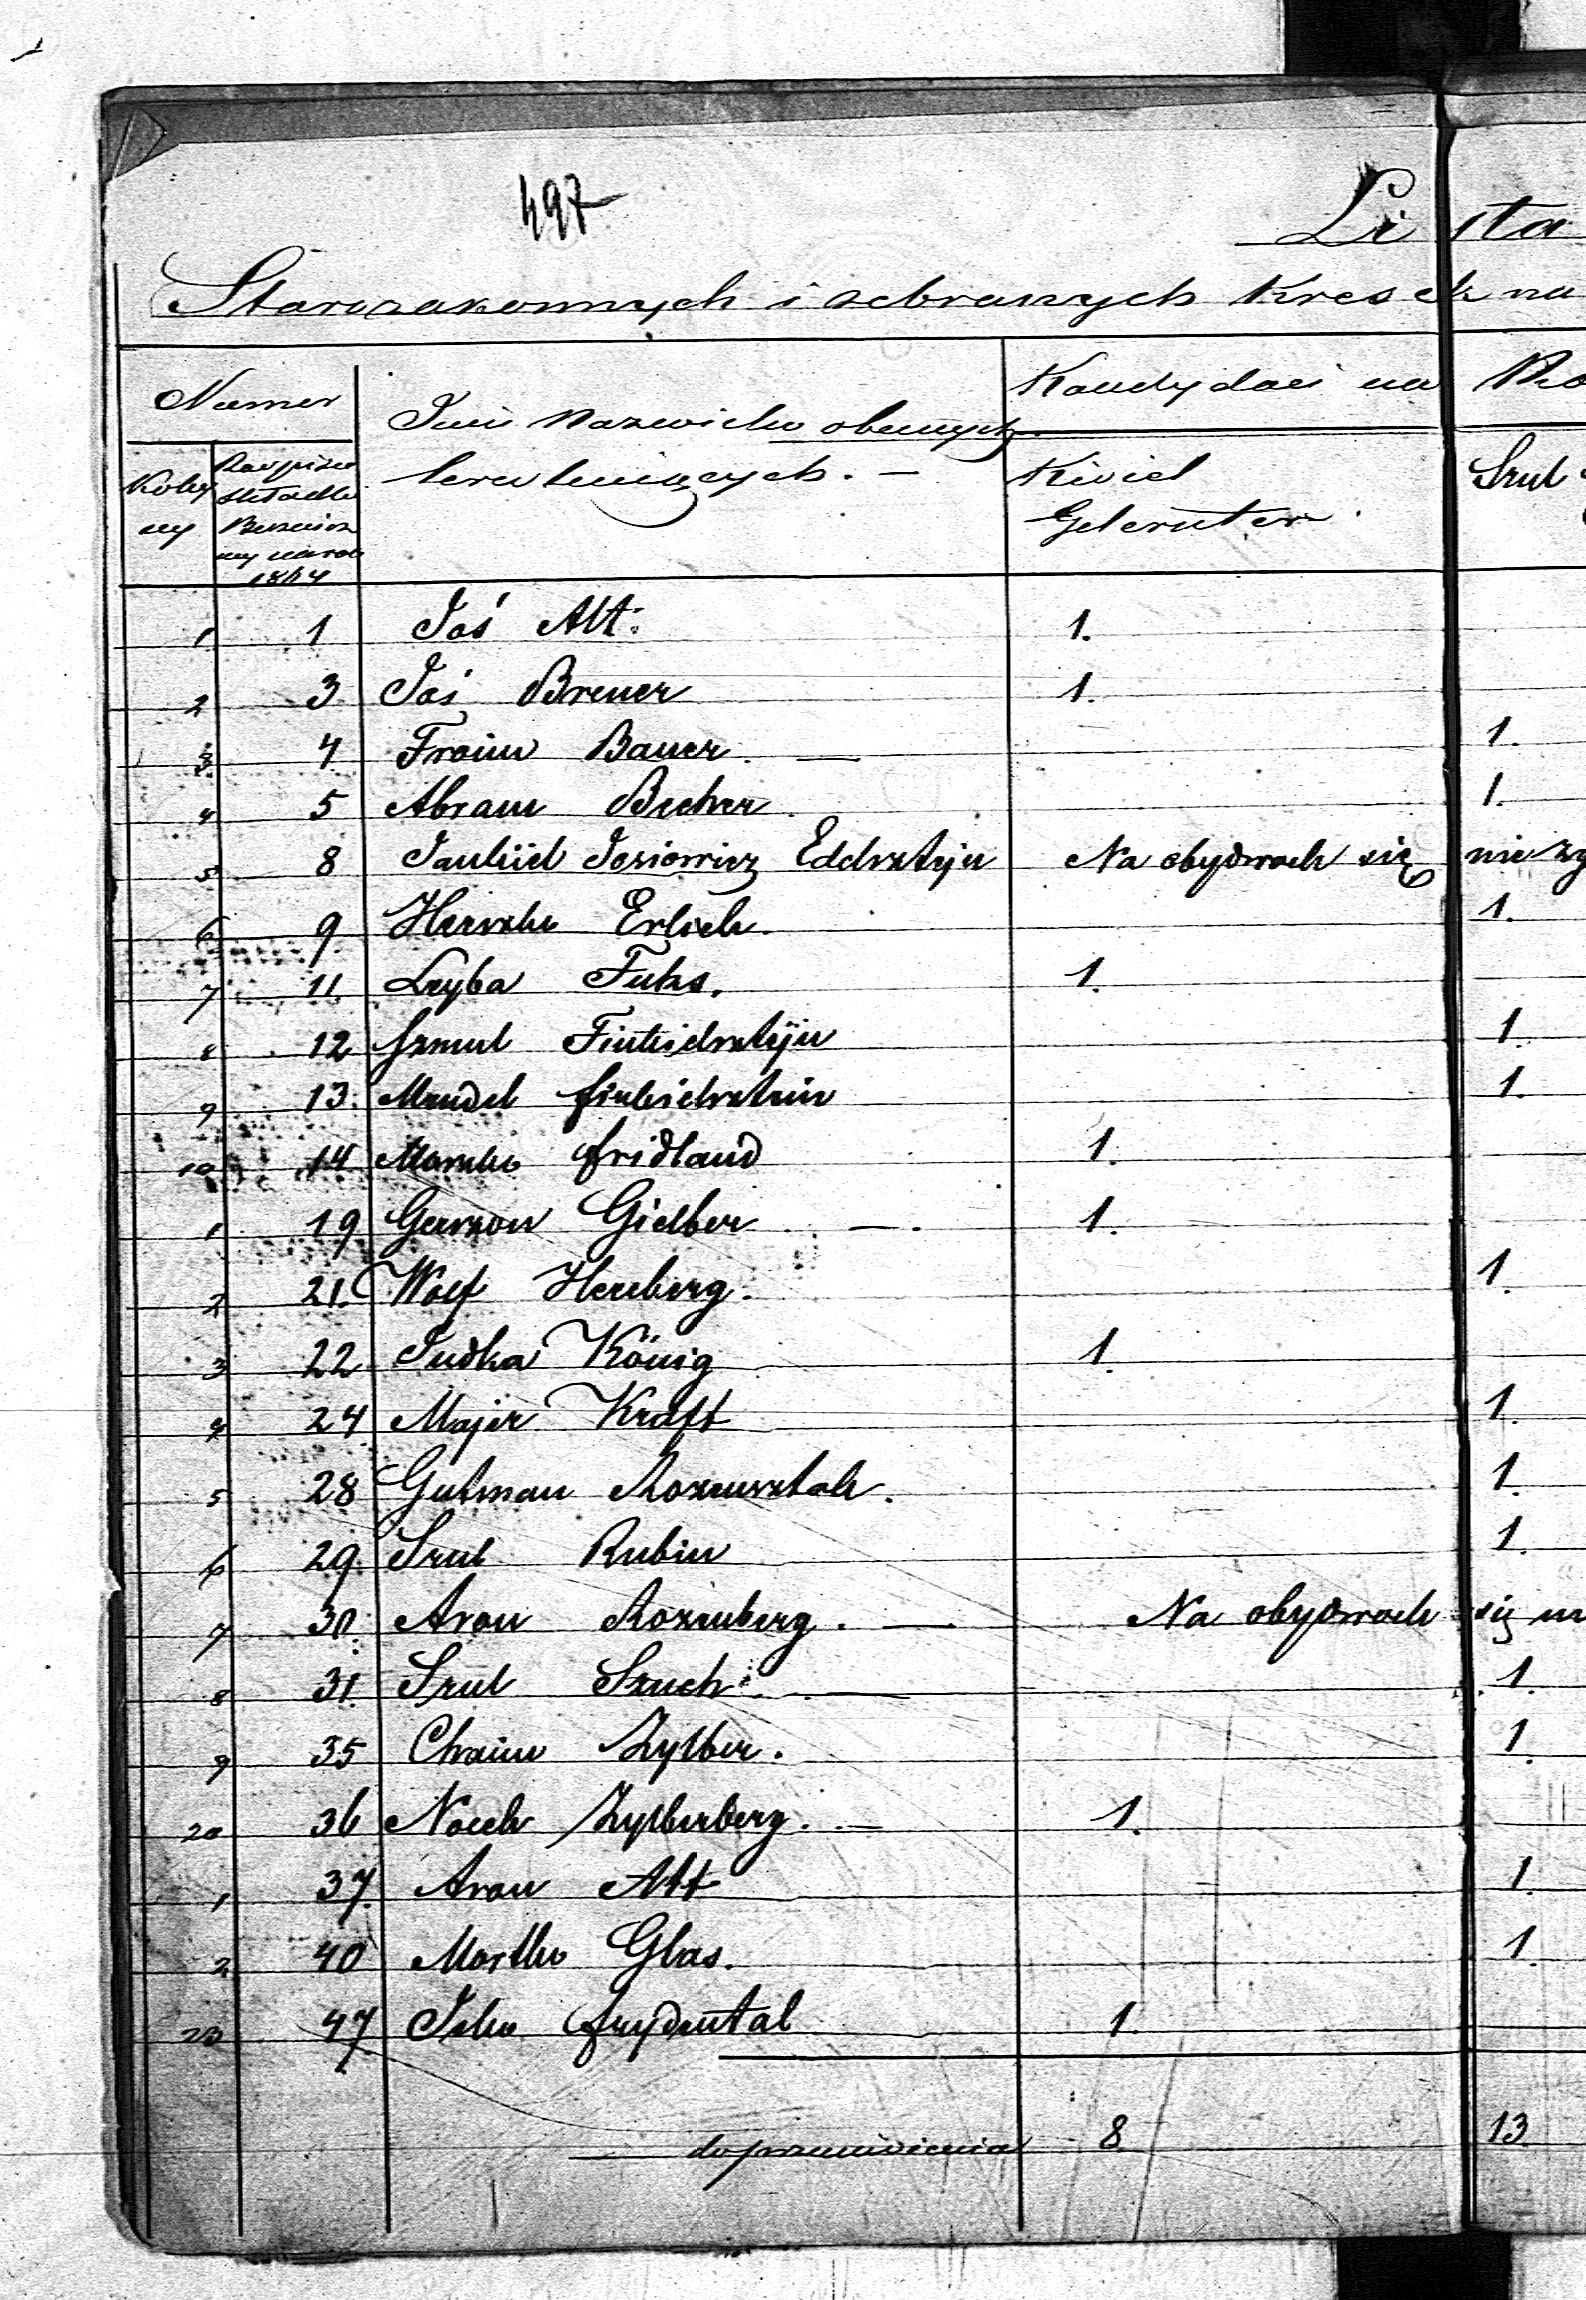 497
Lista
Starozakonnych i zebranych Kresek na
Numer
Imie Nazwisko obecnych
Kandydaci na
Koley
ny
składki
1864
Kiwel
Gelernter
Srul
1 1 Joś Alt. 1.
2 3 Joś Brener 1.
3 4 Froim Bauer. — 1.
4 5 Abram Becher. 1.
5 8 Josiowicz Edelsztejn Na obydwoch się nie zg
6 9 Herszko Erlich. 1.
7 11 Leyba Fuks. 1.
8 12 Szmul Finkielsztejn 1.
9 13. Mendel finkielsztein 1.
10 14 Moszko fridland 1.
1 19 Gerszon Gielber — . 1.
2 21. Wolf Hercberg. 1.
3 22 Judka König 1.
4 24 Majer Kraft 1.
5 28 Gutman Rozensztok. 1.
6 29. Srul Rubin 1.
7 30. Aron Rozenberg. — Na obydwoch się
8 31. Srul Szuch. — 1.
9 35 Chaim Zylber. 1.
20 36 Noech Zylberberg. — 1.
1 37. Aron Alt 1.
2 40 Mortko Glas. 1.
23 47 Icko frydental 1
do przeniesienia 8 13